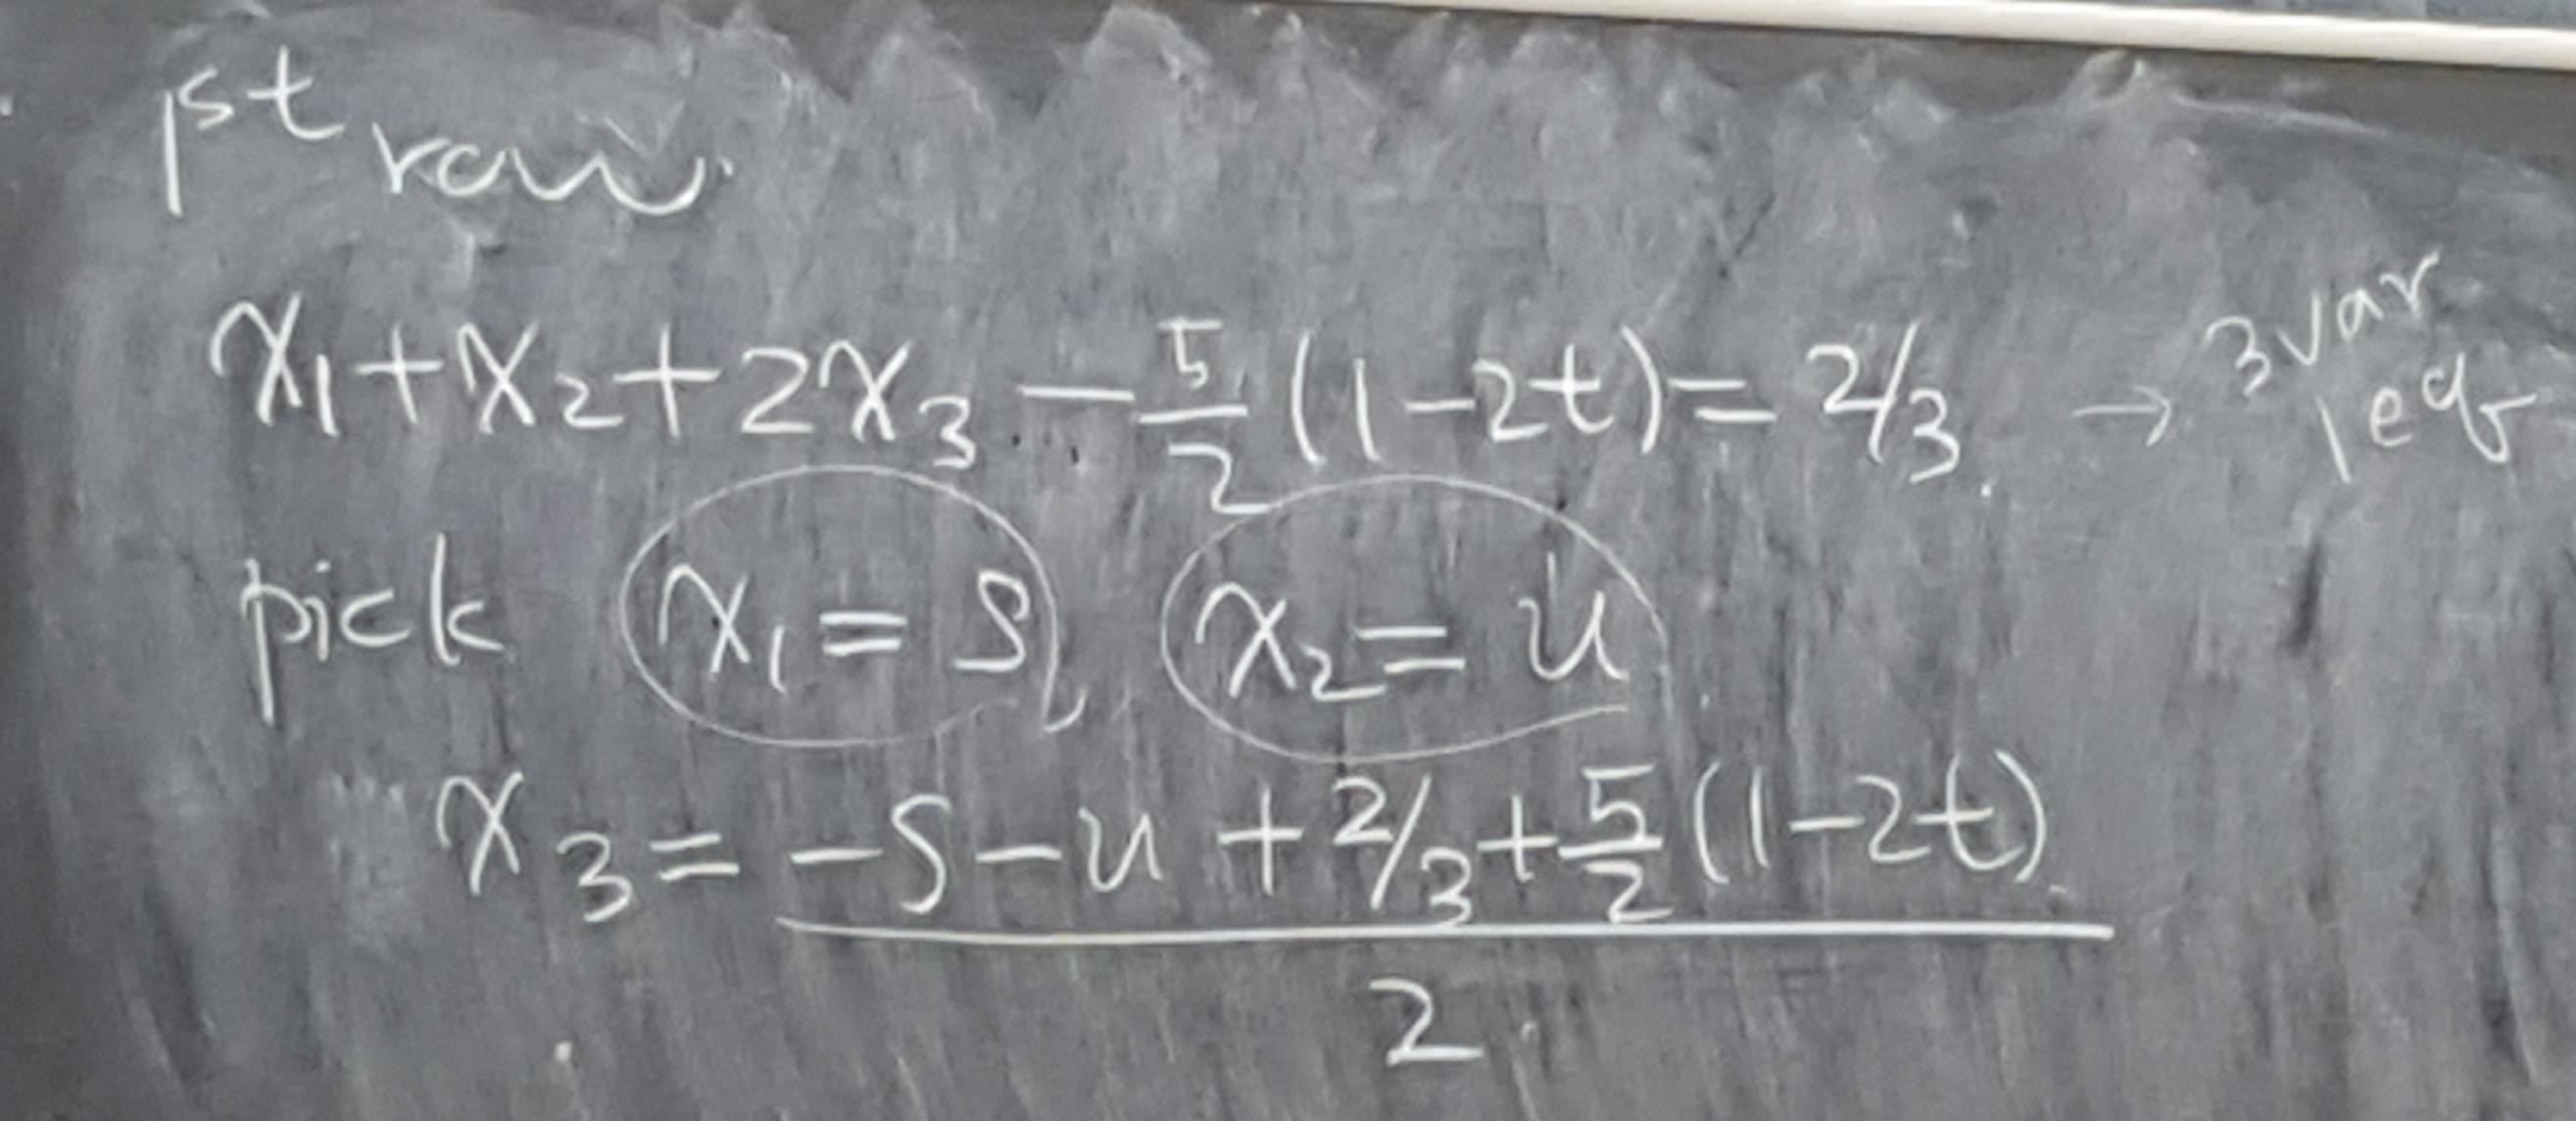 1st row.
x₁+x₂+2x₃ - 5/2 (1-2t) = 2/3. → 3 var 1 eq
pick x₁ = s, x₂ = u
x₃ = (-s - u + 2/3 + 5/2 (1-2t)) / 2.